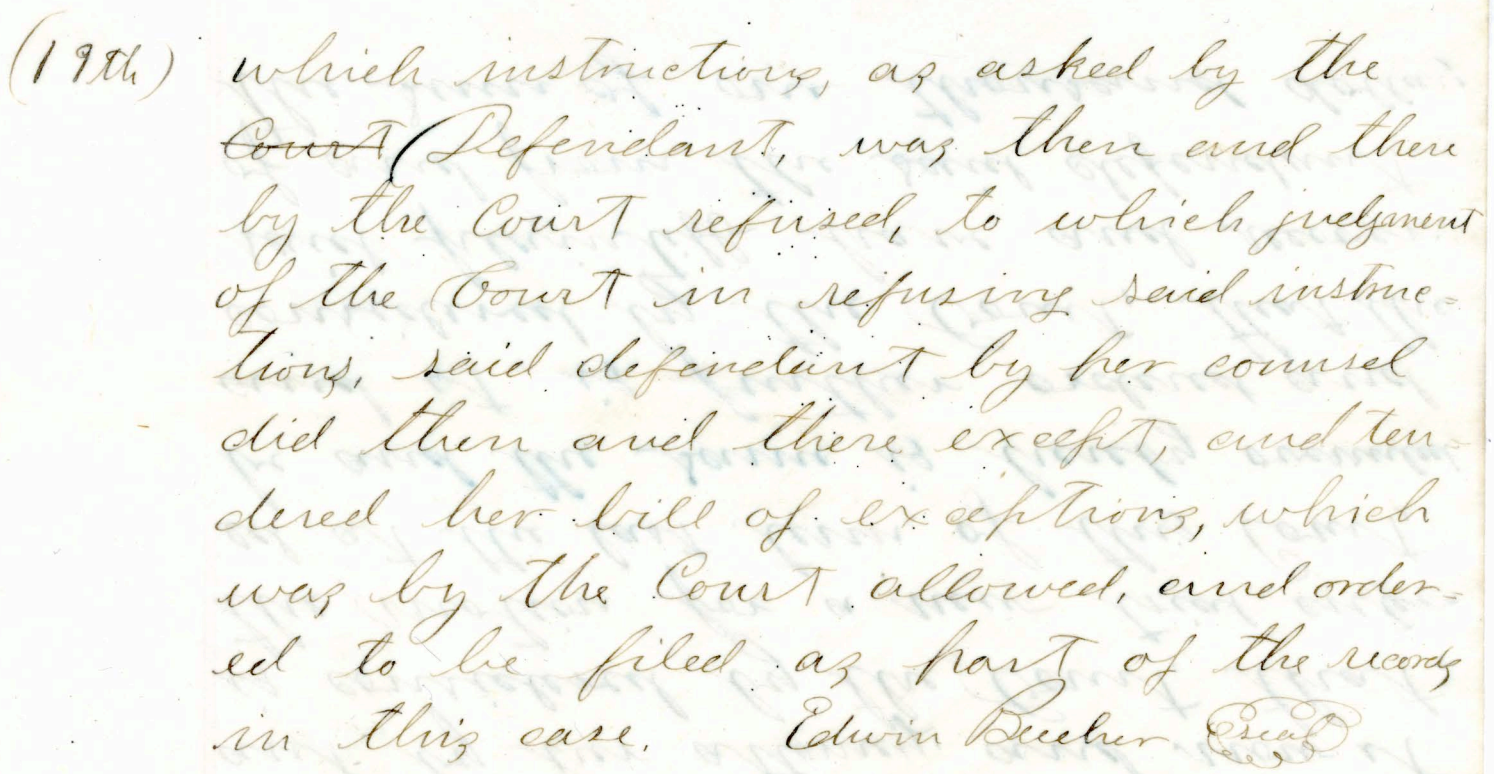 (19th) which instructions, as asked by the
Court Defendant, was then and there
by the Court refused, to which judgment
of the Court in refusing said instruc=
tions, said defendant by her counsel
did then and there except, and ten=
dered her bill of exceptions, which
was by the Court allowed, and order=
ed to be filed as part of the records
in this case. Edwin Beecher Seal